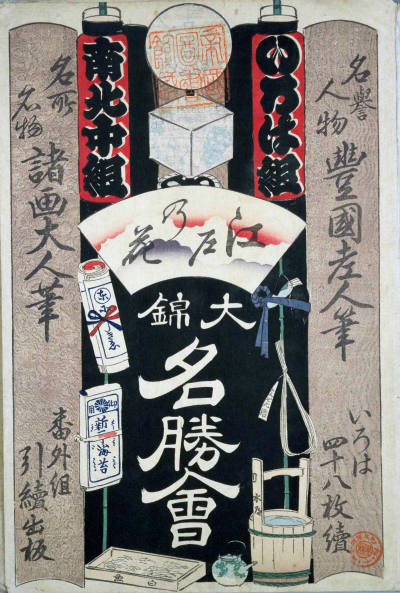 名譽
人物
豐國老人筆
いろは
四十八枚續
いろは組
江戸乃花
大錦
名勝會
白魚
南北中組
新海苔
名所
名物
諸画大人筆
番外組
引續出板